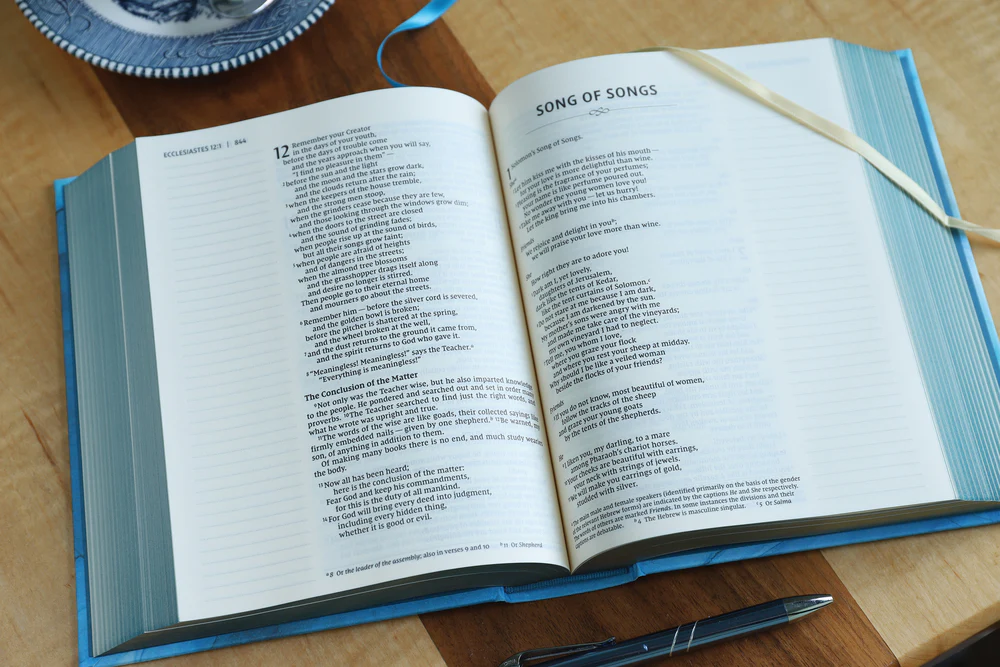 ECCLESIASTES 12:1 | 844
12 Remember your Creator
in the days of your youth,
before the days of trouble come
and the years approach when you will say,
"I find no pleasure in them" —
2 before the sun and the light
and the moon and the stars grow dark,
and the clouds return after the rain;
3 when the keepers of the house tremble,
and the strong men stoop,
when the grinders cease because they are few,
and those looking through the windows grow dim;
4 when the doors to the street are closed
and the sound of grinding fades;
when people rise up at the sound of birds,
but all their songs grow faint;
5 when people are afraid of heights
and of dangers in the streets;
when the almond tree blossoms
and the grasshopper drags itself along
and desire no longer is stirred.
Then people go to their eternal home
and mourners go about the streets.
6 Remember him — before the silver cord is severed,
and the golden bowl is broken;
before the pitcher is shattered at the spring,
and the wheel broken at the well,
7 and the dust returns to the ground it came from,
and the spirit returns to God who gave it.
8 "Meaningless! Meaningless!" says the Teacher.a
"Everything is meaningless!"
The Conclusion of the Matter
9 Not only was the Teacher wise, but he also imparted knowledge
to the people. He pondered and searched out and set in order many
proverbs. 10 The Teacher searched to find just the right words, and
what he wrote was upright and true.
11 The words of the wise are like goads, their collected sayings like
firmly embedded nails — given by one shepherd.b 12 Be warned, my
son, of anything in addition to them.
Of making many books there is no end, and much study wearies
the body.
13 Now all has been heard;
here is the conclusion of the matter:
Fear God and keep his commandments,
for this is the duty of all mankind.
14 For God will bring every deed into judgment,
including every hidden thing,
whether it is good or evil.
a 8 Or the leader of the assembly; also in verses 9 and 10 b 11 Or Shepherd
SONG OF SONGS
1 Solomon's Song of Songs.
She
2 Let him kiss me with the kisses of his mouth —
for your love is more delightful than wine.
3 Pleasing is the fragrance of your perfumes;
your name is like perfume poured out.
No wonder the young women love you!
4 Take me away with you — let us hurry!
Let the king bring me into his chambers.
Friends
We rejoice and delight in you b;
we will praise your love more than wine.
She
How right they are to adore you!
5 Dark am I, yet lovely,
daughters of Jerusalem,
dark like the tents of Kedar,
like the tent curtains of Solomon.c
6 Do not stare at me because I am dark,
because I am darkened by the sun.
My mother's sons were angry with me
and made me take care of the vineyards;
my own vineyard I had to neglect.
7 Tell me, you whom I love,
where you graze your flock
and where you rest your sheep at midday.
Why should I be like a veiled woman
beside the flocks of your friends?
Friends
8 If you do not know, most beautiful of women,
follow the tracks of the sheep
and graze your young goats
by the tents of the shepherds.
He
9 I liken you, my darling, to a mare
among Pharaoh's chariot horses.
10 Your cheeks are beautiful with earrings,
your neck with strings of jewels.
11 We will make you earrings of gold,
studded with silver.
The main male and female speakers (identified primarily on the basis of the gender
of the relevant Hebrew forms) are indicated by the captions He and She respectively.
The words of others are marked Friends. In some instances the divisions and their
captions are debatable. b 4 The Hebrew is masculine singular. c 5 Or Salma